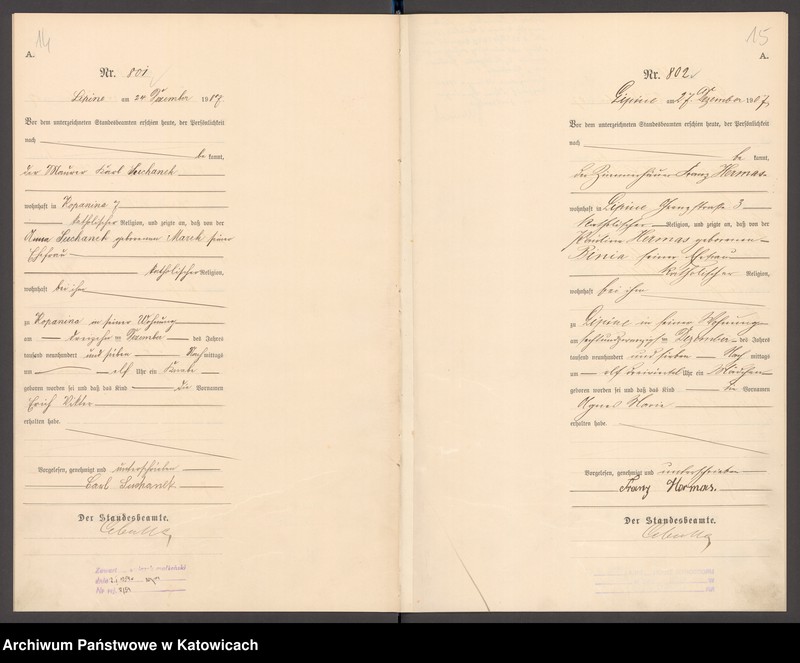 14
A.
Nr. 801
Lipine am 24 Dezember 1907.
Vor dem unterzeichneten Standesbeamten erschien heute, der Persönlichkeit
nach
be kannt,
der Maurer Karl Suchanek
wohnhaft in Kopanina 7
katholischer Religion, und zeigte an, daß von der
Anna Suchanek geborenen Marek seiner
Ehefrau
katholischer Religion,
wohnhaft bei ihm
zu Kopanina in seiner Wohnung
am Dezember des Jahres
tausend neunhundert und sieben Nachmittags
um elf Uhr ein Knabe
geboren worden sei und daß das Kind die Vornamen
Erich Viktor
erhalten habe.
Vorgelesen, genehmigt und unterschrieben
Carl Suchanek.
Der Standesbeamte.
15
A.
Nr. 802
Lipine am 27 Dezember 1907.
Vor dem unterzeichneten Standesbeamten erschien heute, der Persönlichkeit
nach
be kannt,
der Zimmerhäuer Franz Hermas
wohnhaft in Lipine Grenzstraße 3
katholischer Religion, und zeigte an, daß von der
Pauline Hermas geborenen
seiner Ehefrau
katholischer Religion,
wohnhaft bei ihm
zu Lipine in seiner Wohnung
am sechsundzwanzigsten Dezember des Jahres
tausend neunhundert und sieben Nach mittags
um elf dreiviertel Uhr ein Mädchen
geboren worden sei und daß das Kind die Vornamen
Agnes Marie
erhalten habe.
Vorgelesen, genehmigt und unterschrieben
Franz Hermas.
Der Standesbeamte.
Archiwum Państwowe w Katowicach